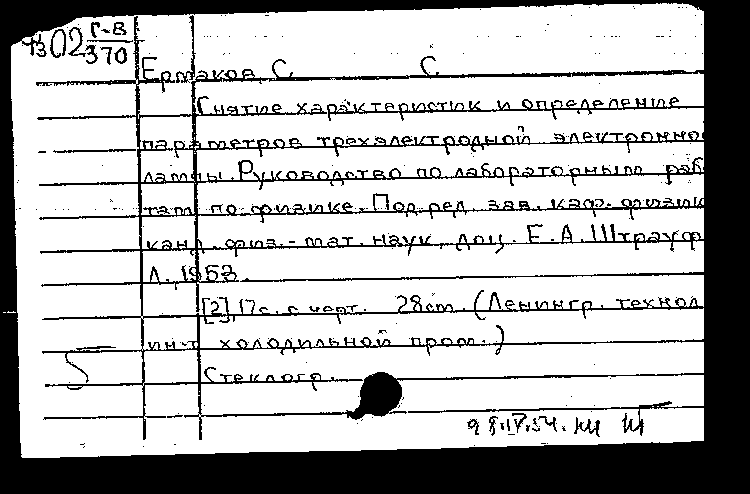 Г-В
302 370
Ермаков, С. С.
Снятие характеристик и определение
параметров трехэлектродной электронно
лампы. Руководство по лабораторным раб
там по физике. Под ред. зав. каф. физик
канд. физ.-мат. наук, доц. Е.А. Штрауф
Л., 1953.
[2], 17с. с черт. 28cm. (Ленингр. технол
ин-т холодильной пром.)
5
Стеклогр.